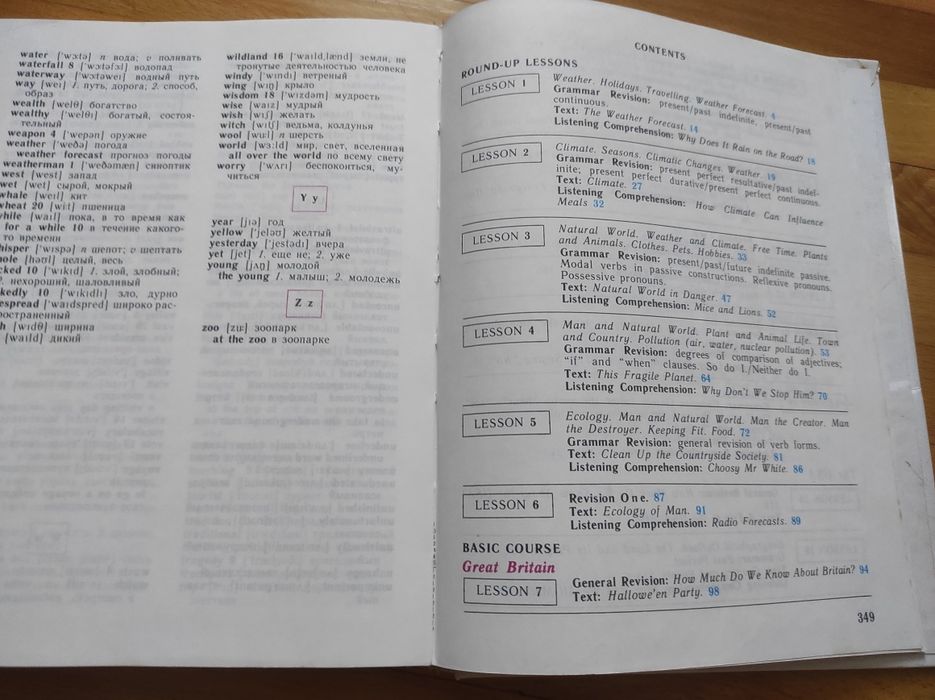 water ['wɔ:tə] n вода; v поливать
waterfall 8 ['wɔ:təfɔ:l] водопад
waterway ['wɔ:təweɪ] водный путь
way [weɪ] 1. путь, дорога; 2. способ,
образ
wealth [welθ] богатство
wealthy ['welθɪ] богатый, состоя-
тельный
weapon 4 ['wepən] оружие
weather ['weðə] погода
weather forecast прогноз погоды
weatherman 1 ['weðəmæn] синоптик
west [west] запад
wet [wet] сырой, мокрый
whale [weɪl] кит
wheat 20 [wi:t] пшеница
while [waɪl] пока, в то время как
for a while 10 в течение какого-
то времени
hisper ['wɪspə] n шепот; v шептать
hole [həʊl] целый, весь
cked 10 ['wɪkɪd] 1. злой, злобный;
2. нехороший, шаловливый
kedly 10 ['wɪkɪdlɪ] зло, дурно
espread ['waɪdspred] широко рас-
ространенный
h [wɪdθ] ширина
[waɪld] дикий
wildland 16 ['waɪld,lænd] земли, не
тронутые деятельностью человека
windy ['wɪndɪ] ветреный
wing [wɪŋ] крыло
wisdom 18 ['wɪzdəm] мудрость
wise [waɪz] мудрый
wish [wɪʃ] желать
witch [wɪtʃ] ведьма, колдунья
wool [wul] n шерсть
world [wɜ:ld] мир, свет, вселенная
all over the world по всему свету
worry ['wʌrɪ] беспокоиться, му-
читься
Y y
year [jɪə] год
yellow ['jeləʊ] желтый
yesterday ['jestədɪ] вчера
yet [jet] 1. еще не; 2. уже
young [jʌŋ] молодой
the young 1. малыш; 2. молодежь
Z z
zoo [zu:] зоопарк
at the zoo в зоопарке
CONTENTS
ROUND-UP LESSONS
LESSON 1
Weather. Holidays. Travelling. Weather Forecast. 4
Grammar Revision: present/past indefinite, present/past
continuous.
Text: The Weather Forecast. 14
Listening Comprehension: Why Does It Rain on the Road? 18
LESSON 2
Climate. Seasons. Climatic Changes. Weather. 19
Grammar Revision: present perfect resultative/past indef-
inite; present perfect durative/present perfect continuous.
Text: Climate. 27
Listening Comprehension: How Climate Can Influence
Meals 32
LESSON 3
Natural World. Weather and Climate. Free Time. Plants
and Animals. Clothes. Pets. Hobbies. 33
Grammar Revision: present/past/future indefinite passive.
Modal verbs in passive constructions. Reflexive pronouns.
Possessive pronouns.
Text: Natural World in Danger. 47
Listening Comprehension: Mice and Lions. 52
LESSON 4
Man and Natural World. Plant and Animal Life. Town
and Country. Pollution (air, water, nuclear pollution). 53
Grammar Revision: degrees of comparison of adjectives;
“if” and “when” clauses. So do I./Neither do I.
Text: This Fragile Planet. 64
Listening Comprehension: Why Don't We Stop Him? 70
LESSON 5
Ecology. Man and Natural World. Man the Creator. Man
the Destroyer. Keeping Fit. Food. 72
Grammar Revision: general revision of verb forms.
Text: Clean Up the Countryside Society. 81
Listening Comprehension: Choosy Mr White. 86
LESSON 6
Revision One. 87
Text: Ecology of Man. 91
Listening Comprehension: Radio Forecasts. 89
BASIC COURSE
Great Britain
LESSON 7
General Revision: How Much Do We Know About Britain? 94
Text: Hallowe'en Party. 98
349